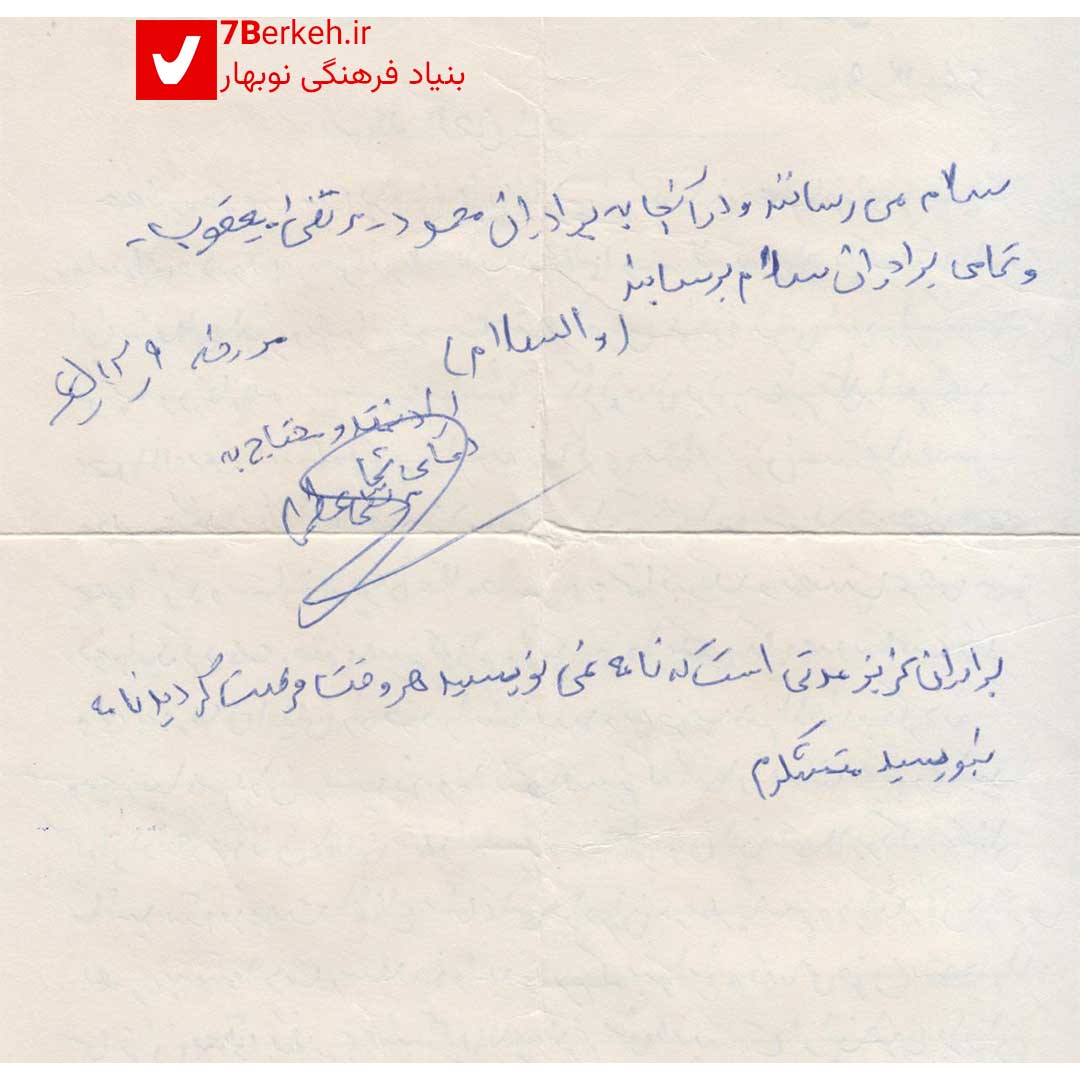 7Berkeh.ir
بنیاد فرهنگی نوبهار
سلام می رسانند و در آنجا به برادران محمود - مرتضی - یعقوب -
و تمامی برادران سلام برسانید
(والسلام)
مورخه
ارادتمند و محتاج به
دعای شما
مرتضی
برادران عزیز مدتی است که نامه نمی نویسید هر وقت فرصت کردید نامه
بنویسید متشکرم